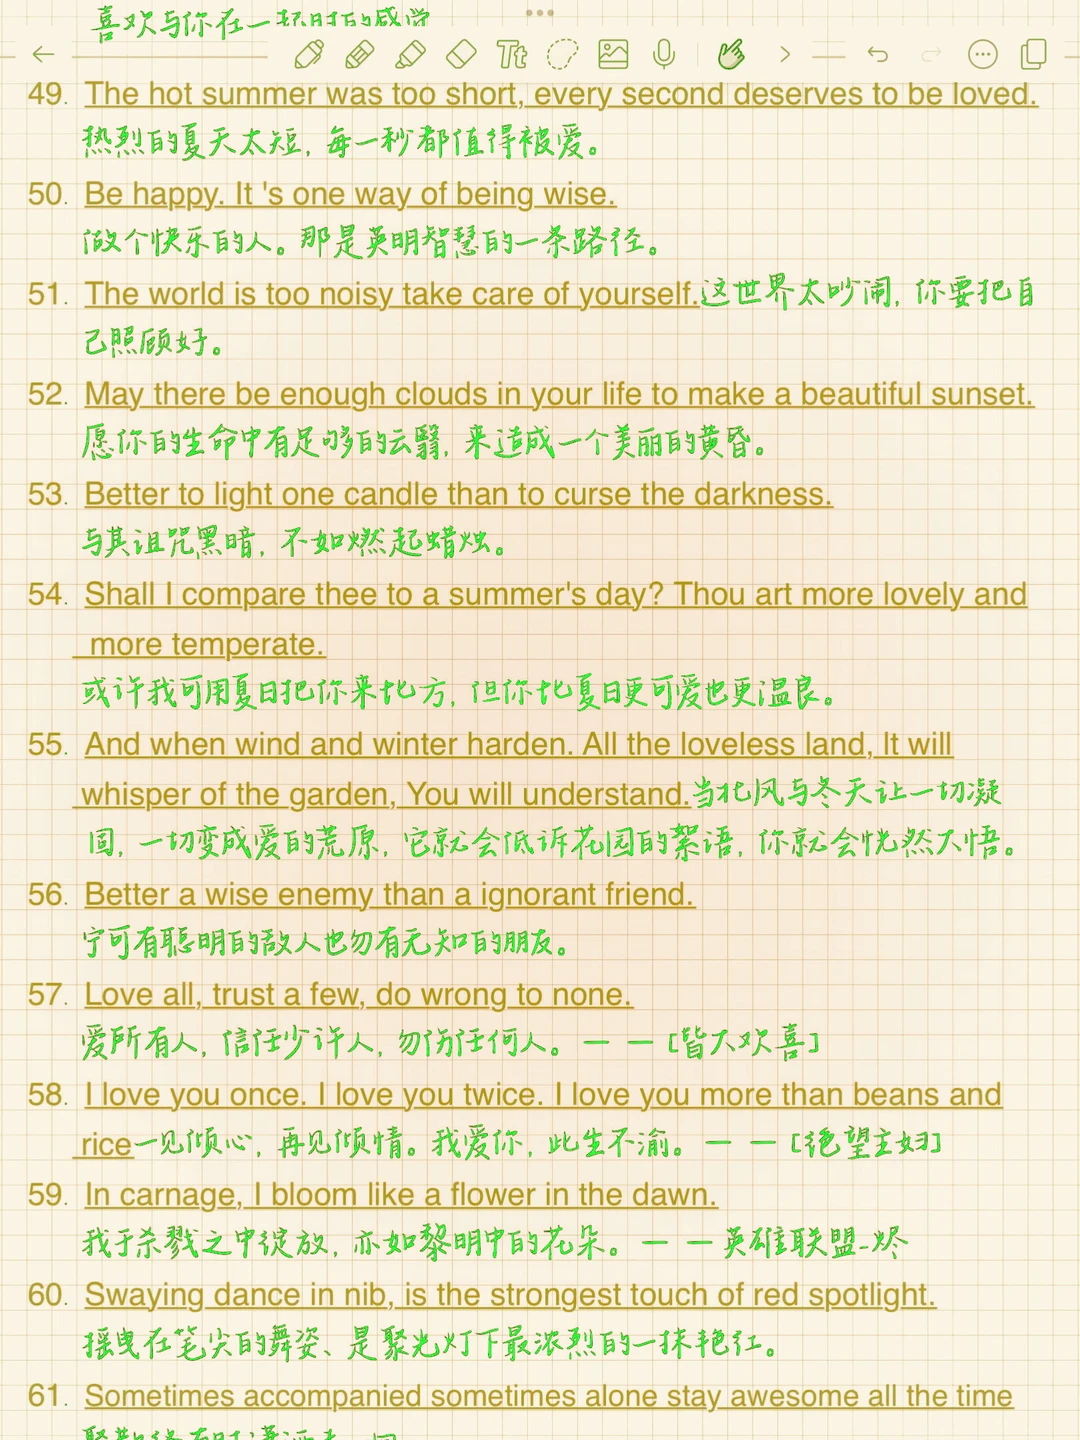 喜欢与你在一起时的感觉
Tt
49. The hot summer was too short, every second deserves to be loved.
热烈的夏天太短, 每一秒都值得被爱。
50. Be happy. It 's one way of being wise.
做个快乐的人。那是英明智慧的一条路径。
51. The world is too noisy take care of yourself.这世界太吵闹, 你要把自
己照顾好。
52. May there be enough clouds in your life to make a beautiful sunset.
愿你的生命中有足够多的云翳, 来造成一个美丽的黄昏。
53. Better to light one candle than to curse the darkness.
与其诅咒黑暗, 不如燃起蜡烛。
54. Shall I compare thee to a summer's day? Thou art more lovely and
more temperate.
或许我可用夏日把你来比方, 但你比夏日更可爱也更温良。
55. And when wind and winter harden. All the loveless land, It will
whisper of the garden, You will understand.当北风与冬天让一切凝
固, 一切变成爱的荒原, 它就会低诉花园的絮语, 你就会恍然大悟。
56. Better a wise enemy than a ignorant friend.
宁可有聪明的敌人也勿有无知的朋友。
57. Love all, trust a few, do wrong to none.
爱所有人, 信任少许人, 勿伤任何人。— — [皆大欢喜]
58. I love you once. I love you twice. I love you more than beans and
rice一见倾心, 再见倾情。我爱你, 此生不渝。— — [绝望主妇]
59. In carnage, I bloom like a flower in the dawn.
我于杀戮之中绽放, 亦如黎明中的花朵。— — 英雄联盟-烬
60. Swaying dance in nib, is the strongest touch of red spotlight.
摇曳在笔尖的舞姿、是聚光灯下最浓烈的一抹艳红。
61. Sometimes accompanied sometimes alone stay awesome all the time